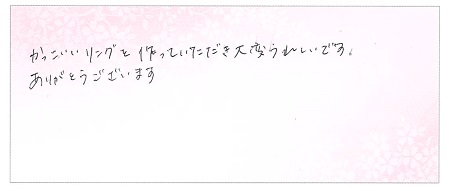 かっこいいリングを作っていただき大変うれしいです。
ありがとうございます